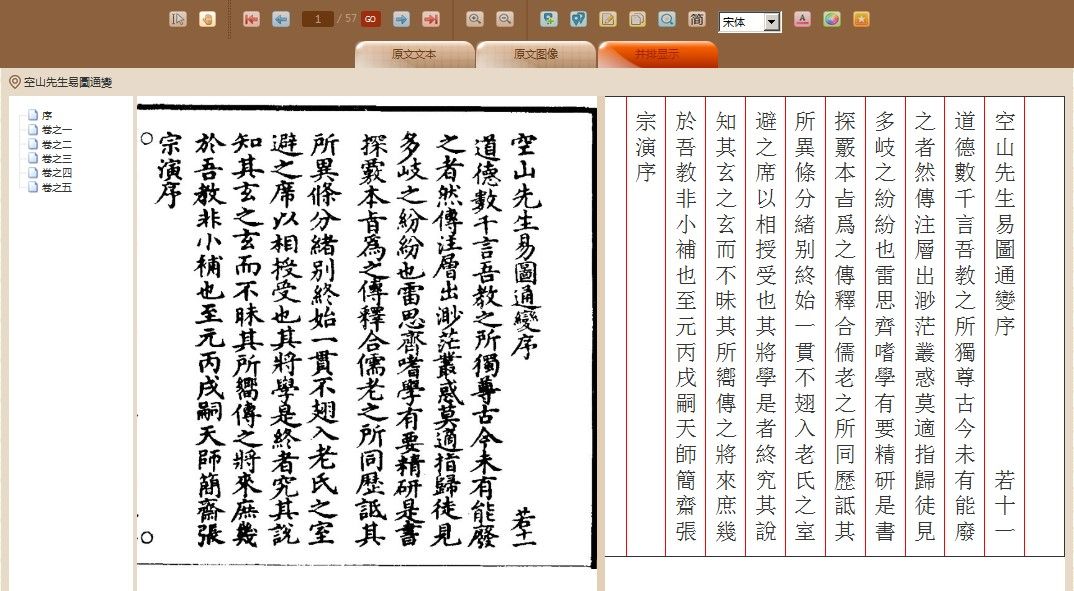 1 / 57 GO 简 宋体 A
原文文本 原文图像 并排显示
空山先生易圖通變
序
卷之一
卷之二
卷之三
卷之四
卷之五
空山先生易圖通變序 若十一
道德數千言吾教之所獨尊古今未有能廢
之者然傳注層出渺茫叢惑莫適指歸徒見
多岐之紛紛也雷思齊嗜學有要精研是書
探覈本㫖爲之傳釋合儒老之所同歷詆其
所異條分緒别終始一貫不翅入老氏之室
避之席以相授受也其將學是終者究其說
知其玄之玄而不昧其所嚮傳之將來庶幾
於吾教非小補也至元丙戌嗣天師簡齋張
宗演序
空山先生易圖通變序 若十一
道德數千言吾教之所獨尊古今未有能廢
之者然傳注層出渺茫叢惑莫適指歸徒見
多岐之紛紛也雷思齊嗜學有要精研是書
探覈本㫖爲之傳釋合儒老之所同歷詆其
所異條分緒别終始一貫不翅入老氏之室
避之席以相授受也其將學是者終究其說
知其玄之玄而不昧其所嚮傳之將來庶幾
於吾教非小補也至元丙戌嗣天師簡齋張
宗演序